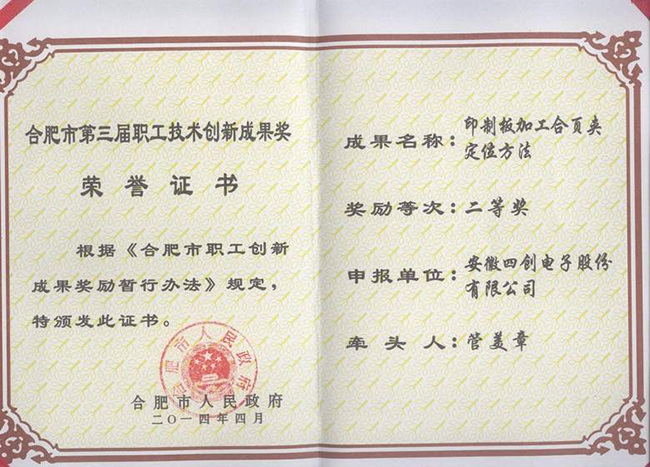 合肥市第三届职工技术创新成果奖
荣誉证书
根据《合肥市职工创新
成果奖励暂行办法》规定，
特颁发此证书。
合肥市人民政府
合肥市人民政府
二〇一四年四月
成果名称：印制板加工合页夹
定位方法
奖励等次：二等奖
申报单位：安徽四创电子股份
有限公司
牵头人：管美章